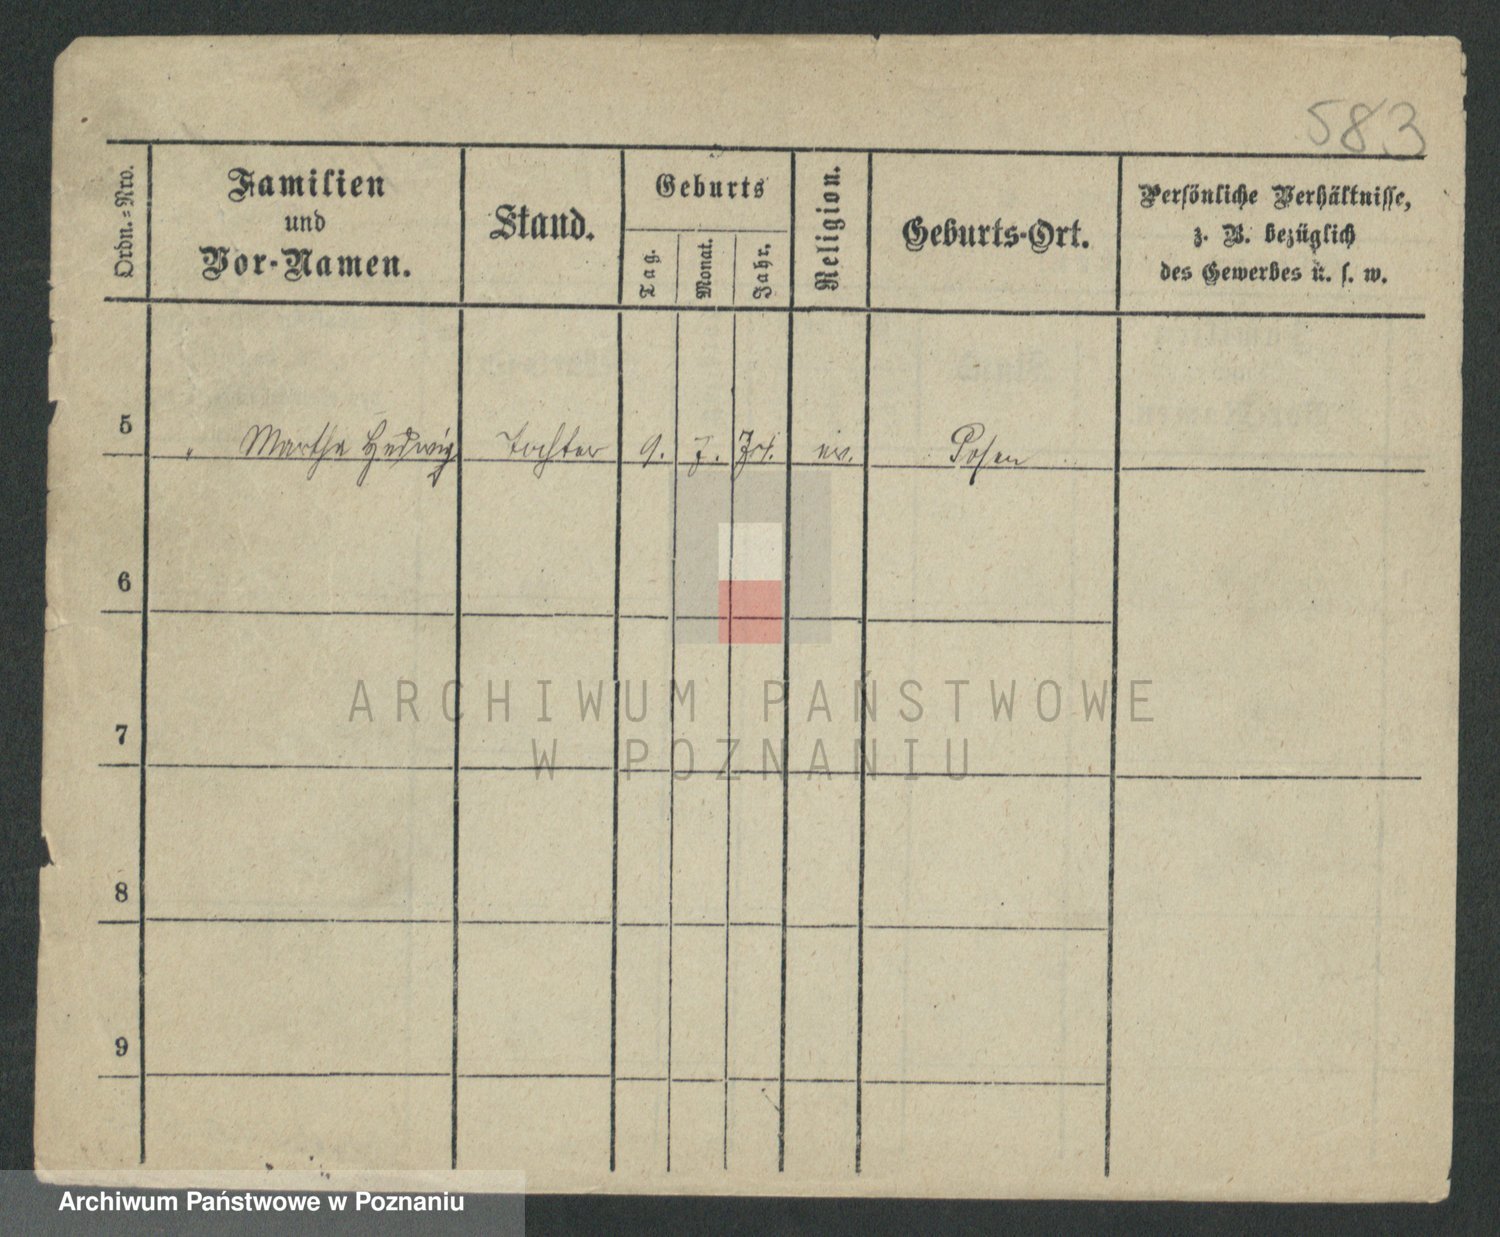 583
Ordn.=Nro.
Familien
und
Vor-Namen.
Stand.
Geburts
Tag.
Monat.
Jahr.
Religion.
Geburts-Ort.
Persönliche Verhältnisse,
z. B. bezüglich
des Gewerbes u. s. w.
5 " Martha Hedwig Tochter 9. 7. ev. Posen
6
7
8
9
ARCHIWUM PAŃSTWOWE
W POZNANIU
Archiwum Państwowe w Poznaniu